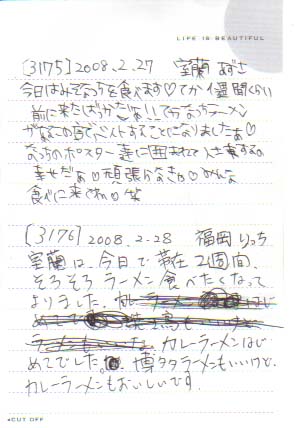 LIFE IS BEAUTIFUL
[3175] 2008.2.27 室蘭 あずさ
今日はみそなっちを食べます♡てか1週間くらい
前に来たばっかだょ!!てかなっちラーメン
がなこの店でバイトすることになりましたぁ♡
なっちのポスター達に囲まれて仕事するの
幸せだぁ♡頑張らなきゃ♡みんな
食べに来てね♡笑
[3176] 2008.2-28 福岡 りっち
室蘭は、今日で滞在2週間、
そろそろラーメン食べたくなって
よりました。
カレーラーメンはじ
めてでした。博多ラーメンもいいけど、
カレーラーメンもおいしいです。
CUT OFF